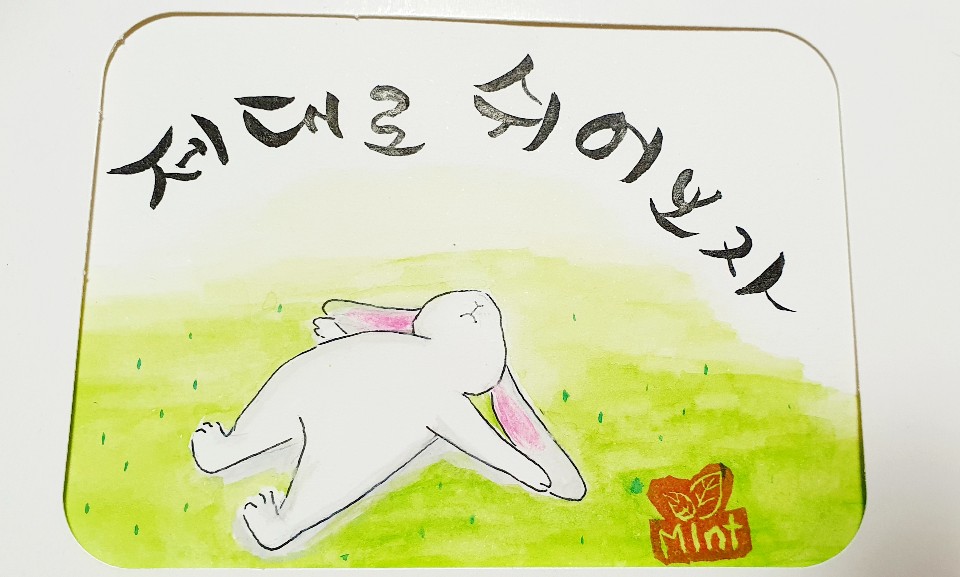 제대로 쉬어보자
Mint